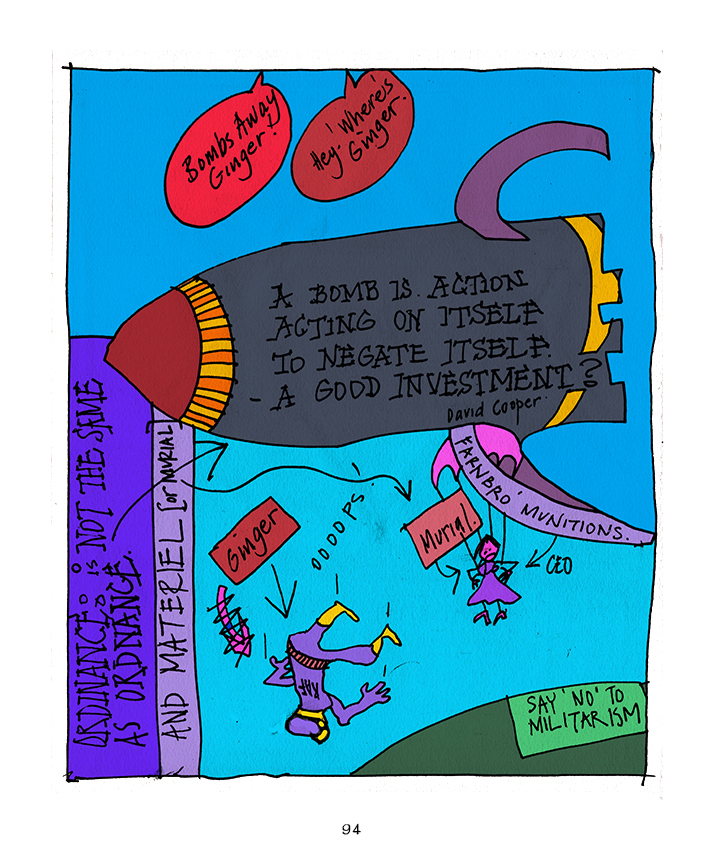 Bombs Away
Ginger!
Hey. 'Where's
Ginger.
A BOMB IS. ACTION
ACTING ON ITSELF
TO NEGATE ITSELF.
- A GOOD INVESTMENT?
David Cooper.
ORDINANCE. IS NOT THE SAME
AS ORDNANCE.
AND MATERIEL [or MURIAL]
Ginger
OOOOPS.
Murial.
FARNBRO' MUNITIONS.
CEO
RAF
SAY 'NO' TO
MILITARISM
94